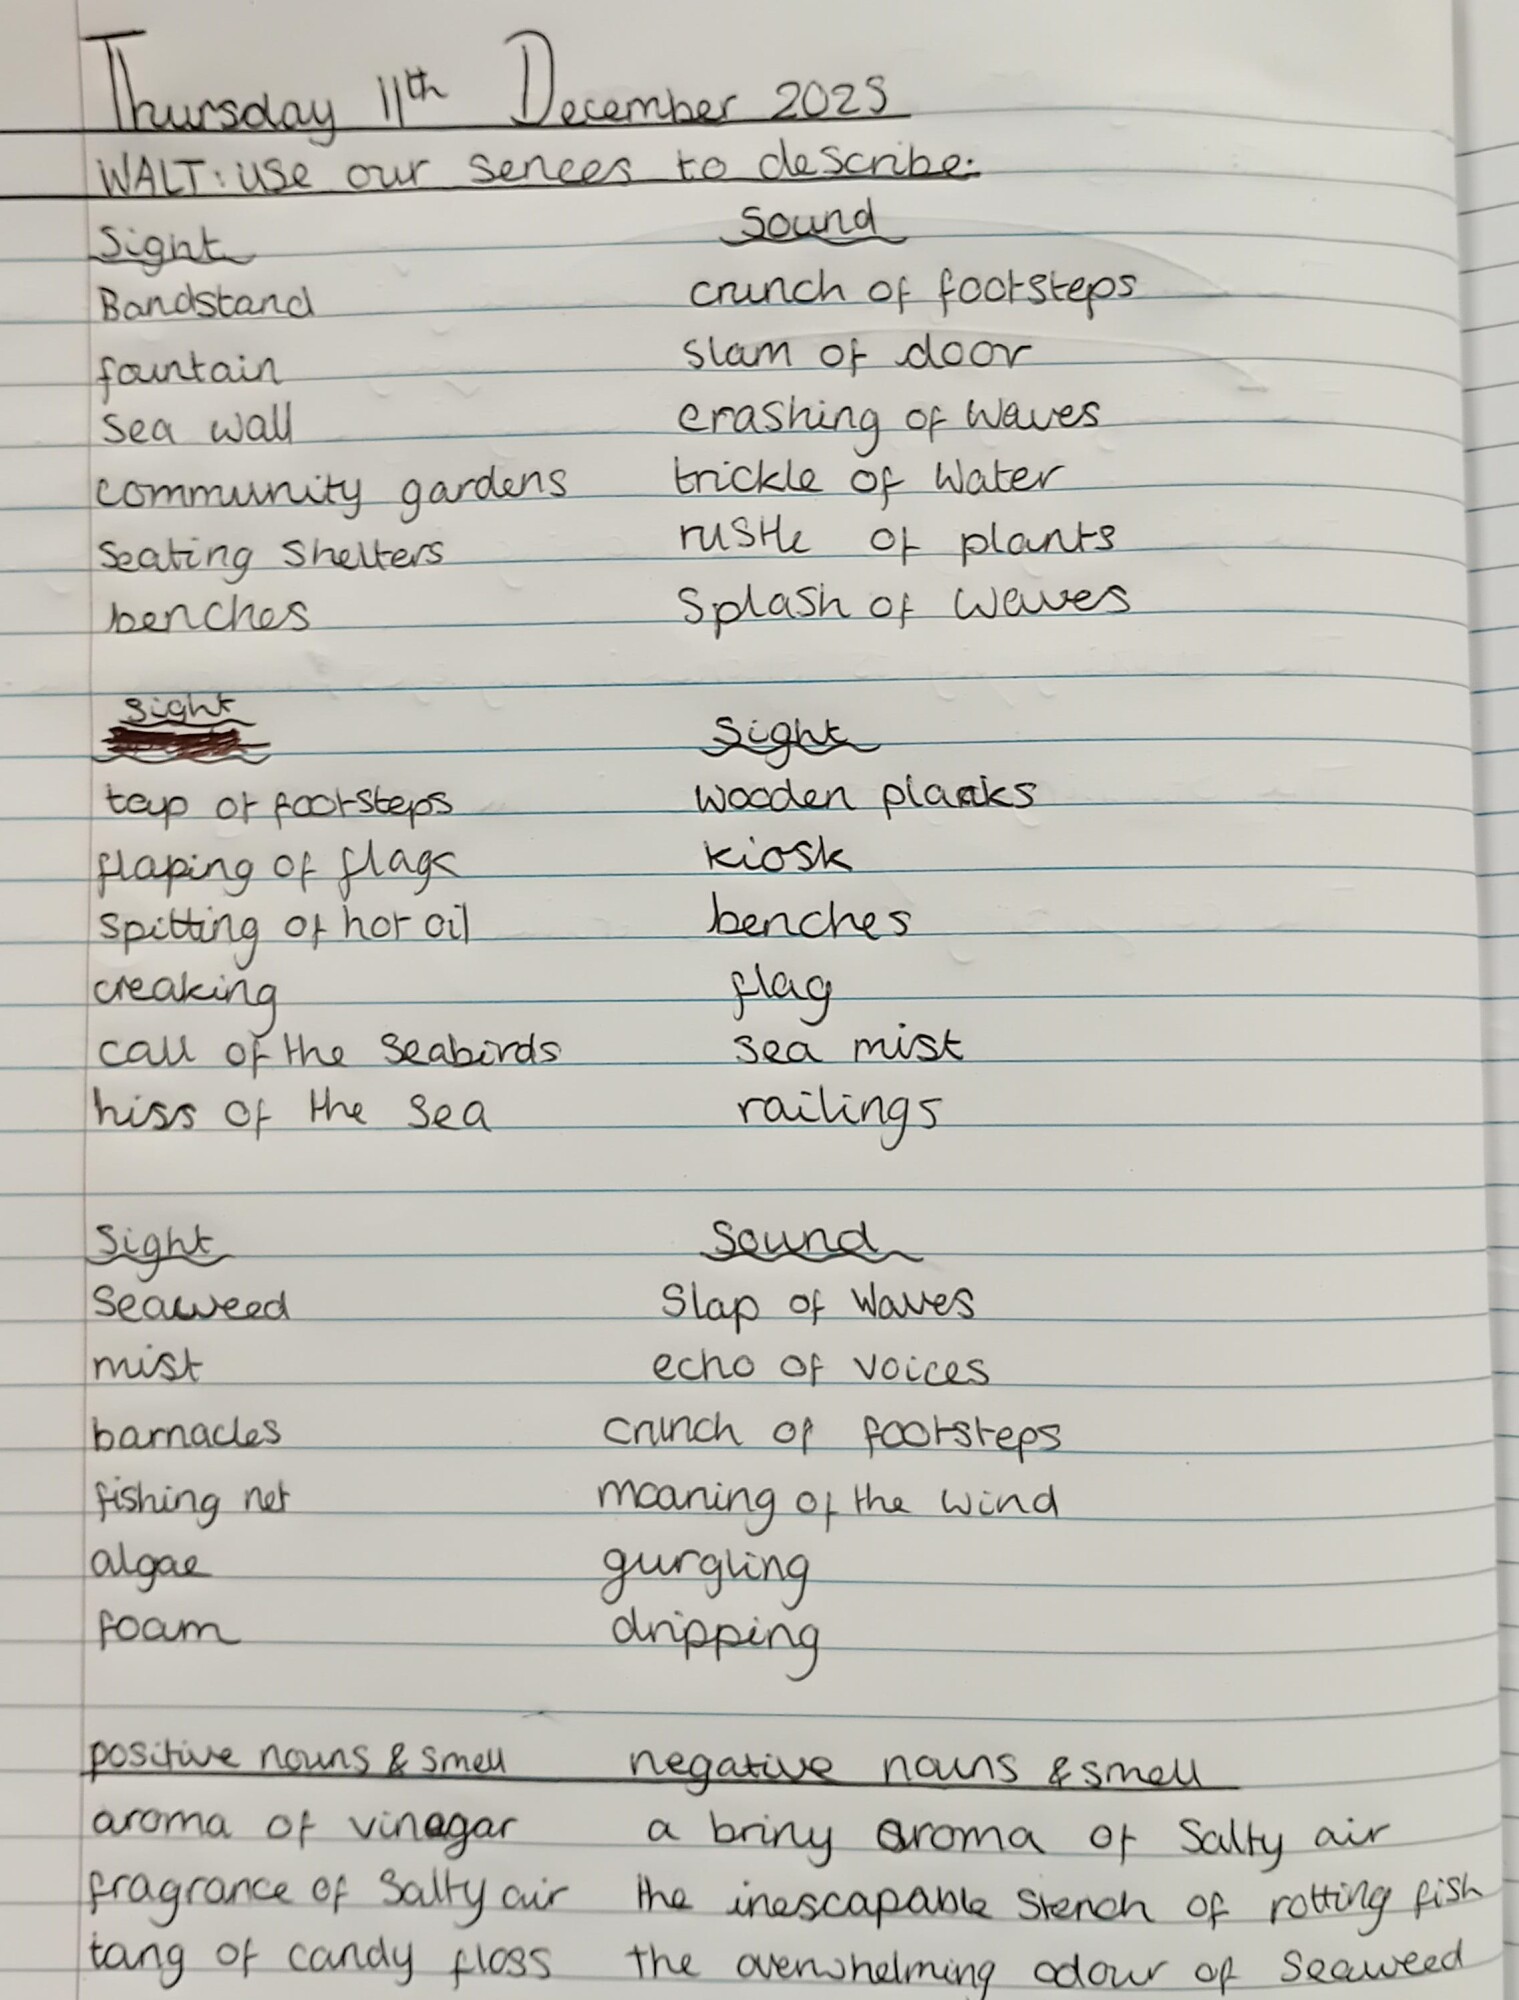 Thursday 11th December 2025
WALT: use our sences to describe:
Sight
Sound
Bandstand
crunch of footsteps
fountain
slam of door
sea wall
crashing of waves
community gardens
trickle of water
Seating Shelters
rustle of plants
benches
Splash of waves
Sight
Sight
tap of footsteps
wooden planks
flaping of flags
kiosk
spitting of hot oil
benches
creaking
flag
call of the seabirds
sea mist
hiss of the sea
railings
Sight
Sound
Seaweed
Slap of waves
mist
echo of voices
barnacles
crunch of footsteps
fishing net
moaning of the wind
algae
gurgling
foam
dripping
positive nouns & smell
negative nouns & smell
aroma of vinegar
a briny aroma of Salty air
fragrance of Salty air
the inescapable stench of rotting fish
tang of candy floss
the overwhelming odour of Seaweed